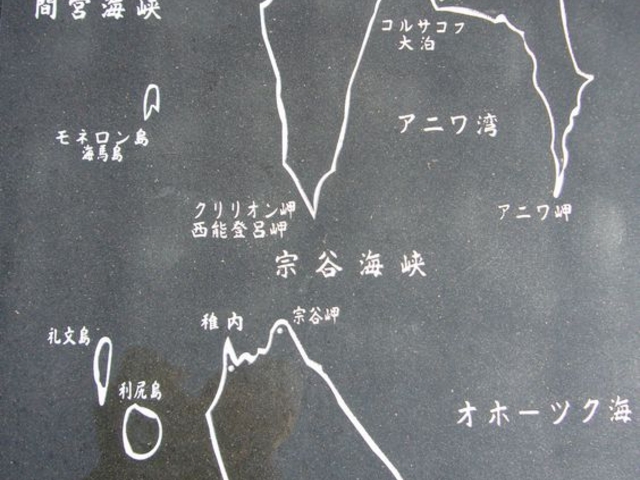 間宮海峡
コルサコフ
大泊
モネロン島
海馬島
アニワ湾
クリリオン岬
西能登呂岬
アニワ岬
宗谷海峡
稚内
宗谷岬
礼文島
利尻島
オホーツク海